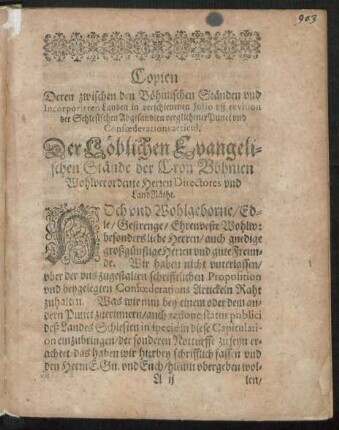 903
Copien
Deren zwischen den Böhmischen Ständen vnd
Incorporirten Landen in verschienenen Julio vff revision
der Schlesischen Abgesandten verglichener Punct vnd
Confœderationsarticul.
Der Löblichen Evangeli-
schen Stände der Cron Böhmen
Wohlverordente Herren Directores vnd
Land Räthe.
HOch vnd Wohlgeborne/ Ed-
le/ Gestrenge/ Ehrenveste Wohlw:
besonders liebe Herren/ auch gnedige
großgünstige Herren vnd gute Freun-
de. Wir haben nicht vnterlassen/
vber der vns zugestalten schrifftlichen Proposition
vnd beygelegten Confœderations Artickeln Raht
zuhalten. Was wir nun bey einem oder dem an-
dern Punct zuerinnern/ auch ratione status publici
deß Landes Schlesien in specie in diese Capitulati-
on einzubringen/ der sonderen Notturfft zuseyn er-
achtet/ das haben wir hierbey schrifftlich fassen vnd
den Herrn E. Gn. vnd Euch/ hiemit vbergeben wol-
A ij
len/